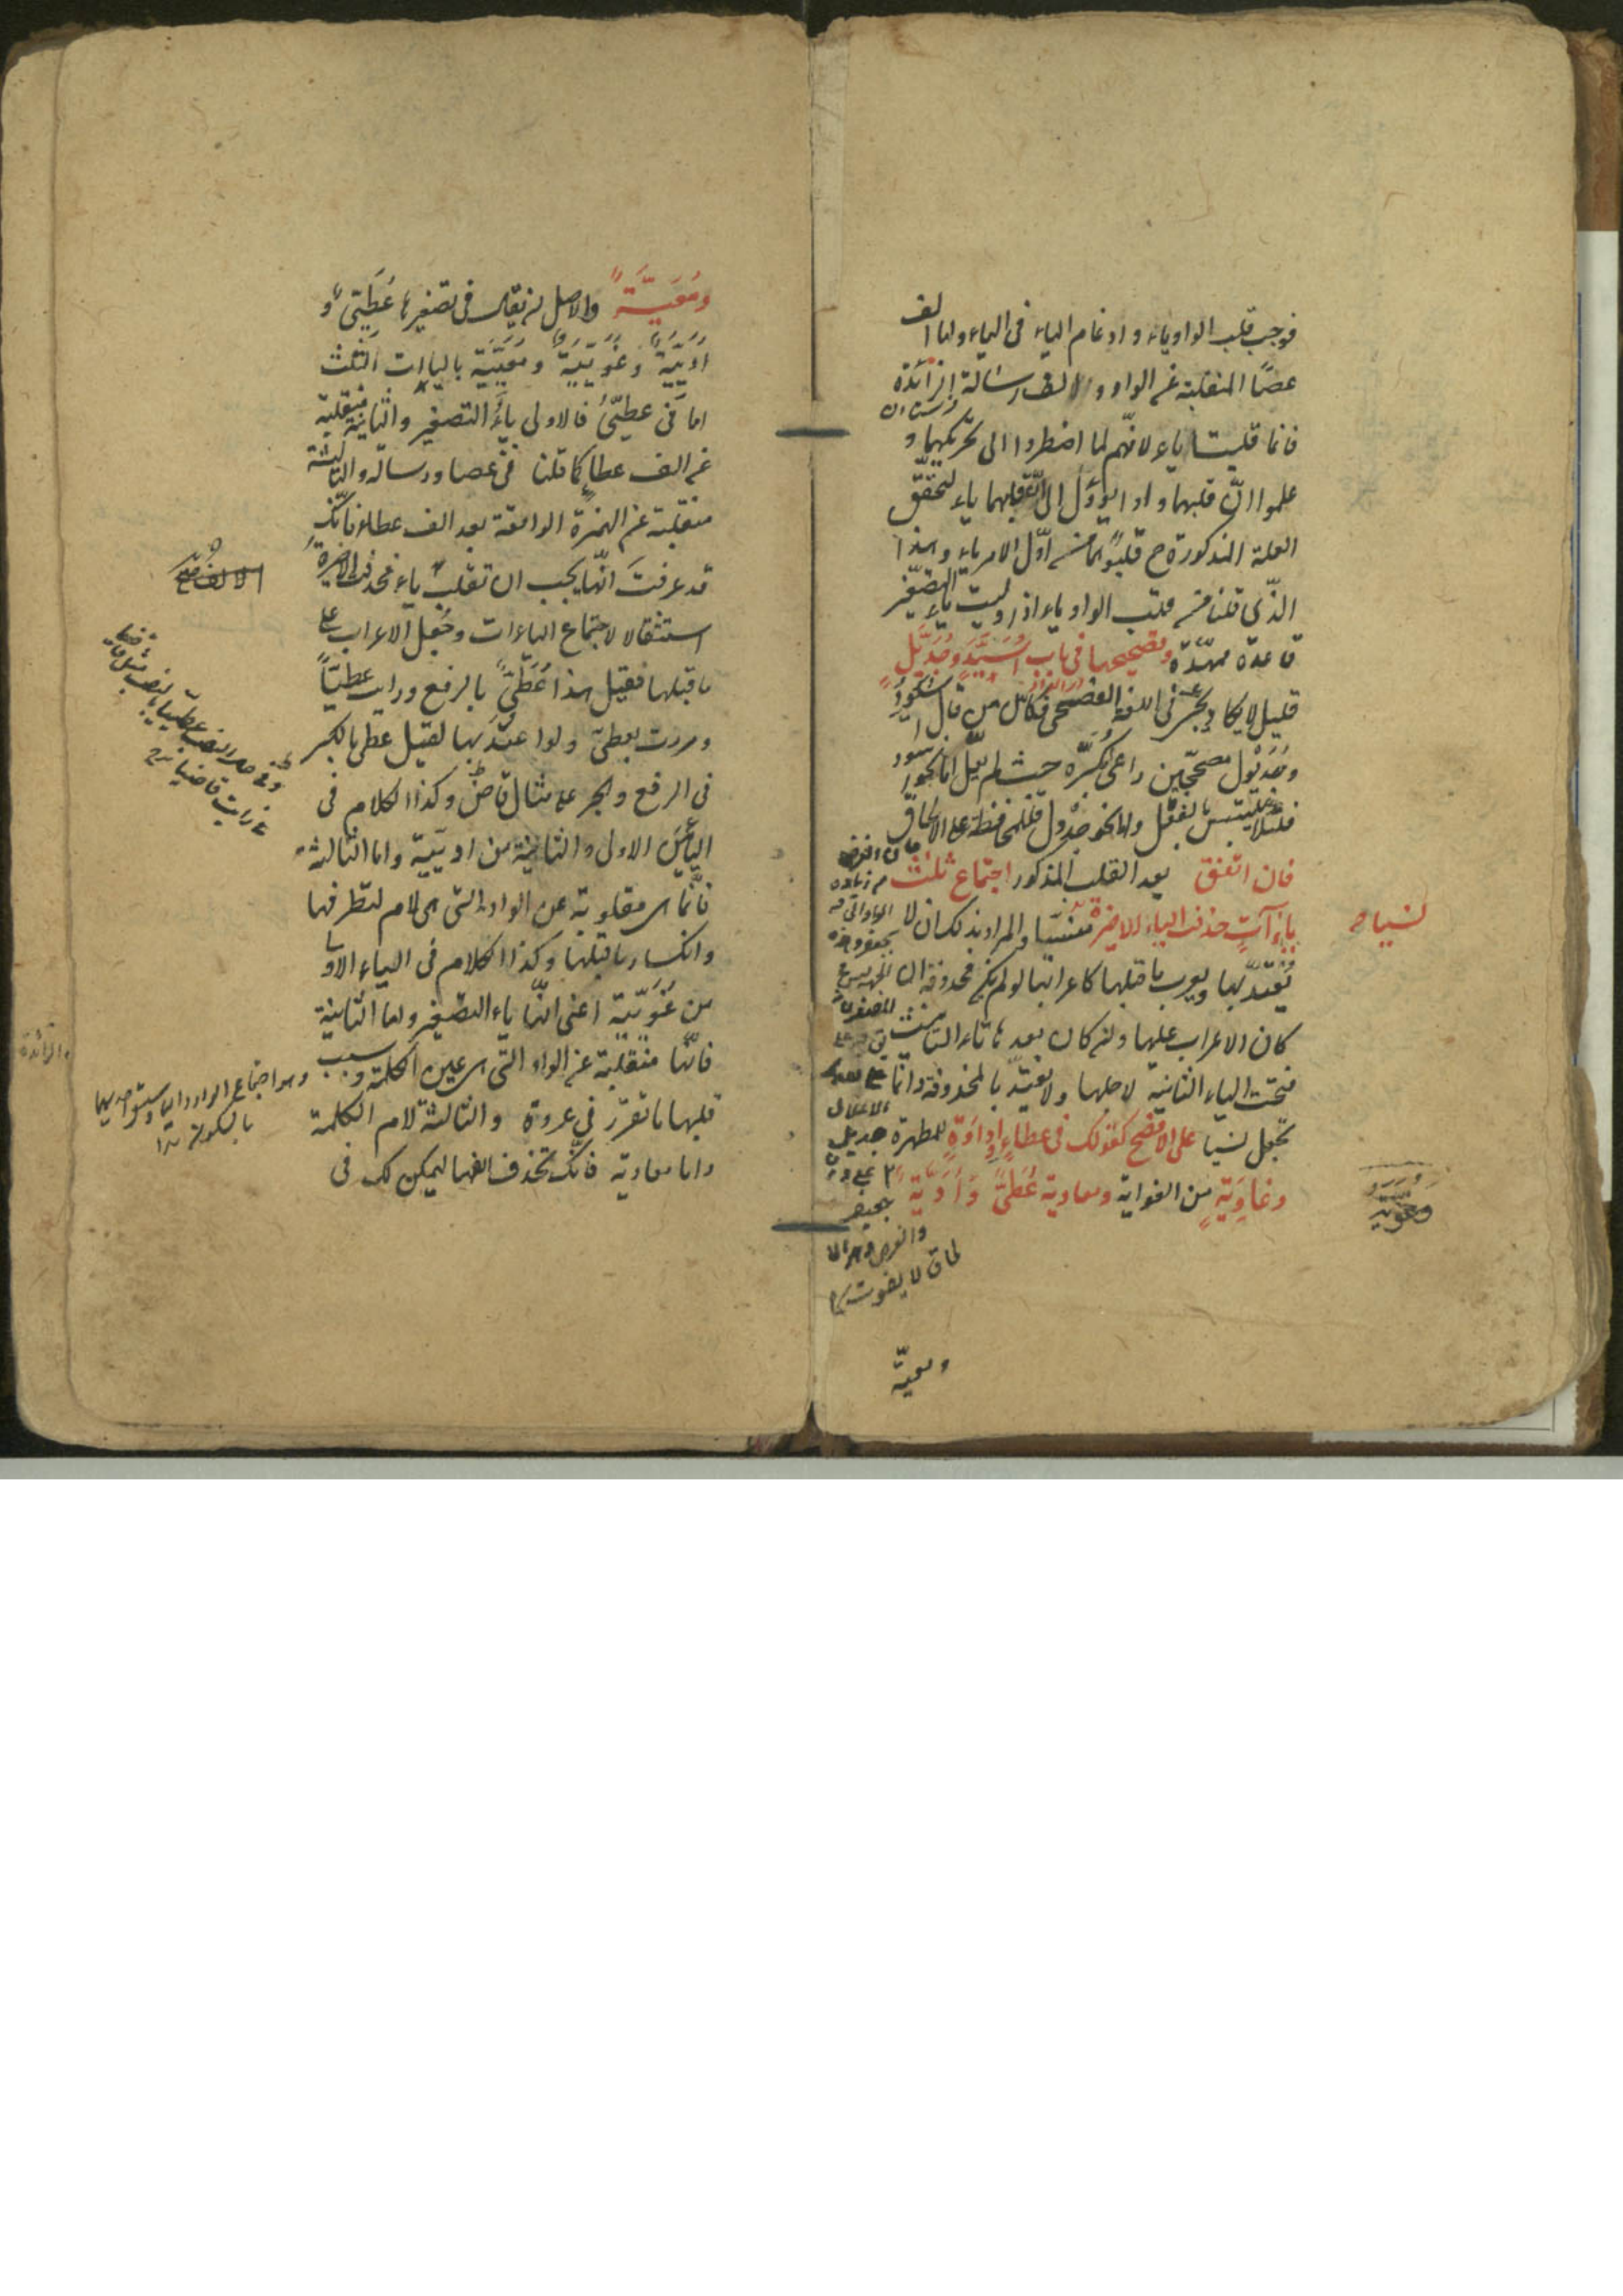 فوجب قلب الواو ياء وادغام الياء فى الياء واما الف
عصا المنقلبة عن الواو والالف رسالة الزائدة
فانما قلبتا ياء لانهم لما اضطروا الى تحريكهما و
علموا ان قلبهما واوا يؤول الى قلبهما ياء لتحقق
العلة المذكورة ح قلبوهما من اول الامر ياء وهذا
الذى قلنا من قلب الواو ياء اذا وليت ياء التصغير
قاعدة ممهدة وتصحيحها فى باب اسيد وجديل
قليل لا يكاد يجئ فى اللغة الفصحى فكان من قال اسيود
وجديول مصححين راعى مكبره حيث لم يعل اما نحو اسود
فلئلا يلتبس بالفعل واما نحو جدول فللمحافظة على الالحاق
فان اتفق بعد القلب المذكور اجتماع ثلث
ياءات حذفت الياء الاخيرة نسيا والمراد بذلك ان لا
يعتد بها ويعرب ما قبلها كاعرابها لو لم تكن محذوفة
كان الاعراب عليها وان كان بعدها تاء التانيث
فتحت الياء الثانية لاجلها ولا يعتد بالمحذوفة وانما
تجعل نسيا على الافصح كقولك فى عطاء واداوة للمطهرة
وغاوية من الغواية ومعاوية عطى وادية
نسيا
وغوية
والغرض
الالحاق لا يفوت
ومعية
ومعية والاصل ان يقال فى تصغيرها عطيى و
اديية وغويية ومعيية بالياات الثلث
اما فى عطيى فالاولى ياء التصغير والثانية منقلبة
عن الف عطاء كما قلنا فى عصا ورسالة والثالثة
منقلبة عن الهمزة الواقعة بعد الف عطاء فانك
قد عرفت انها يجب ان تقلب ياء فحذفت الاخيرة
استثقالا لاجتماع الياءات وجعل الاعراب على
ما قبلها فقيل هذا عطى بالرفع ورايت عطيا
ومررت بعطى ولو اعتد بها لقيل عطى بالكسر
فى الرفع والجر على مثال قاض وكذا الكلام فى
اليائين الاولى والثانية من اديية واما الثالثة
فانما هى مقلوبة عن الواو التى هى لام لتطرفها
وانكسار ما قبلها وكذا الكلام فى الياء الاولى
من غويية اعنى انها ياء التصغير واما الثانية
فانها منقلبة عن الواو التى هى عين الكلمة وسبب
قلبها ما تقرر فى عروة والثالثة لام الكلمة
واما معاوية فانك تحذف الفها ليمكن لك فى
وهو اجتماع الواو والياء وسبق احديهما
بالسكون
الزائدة